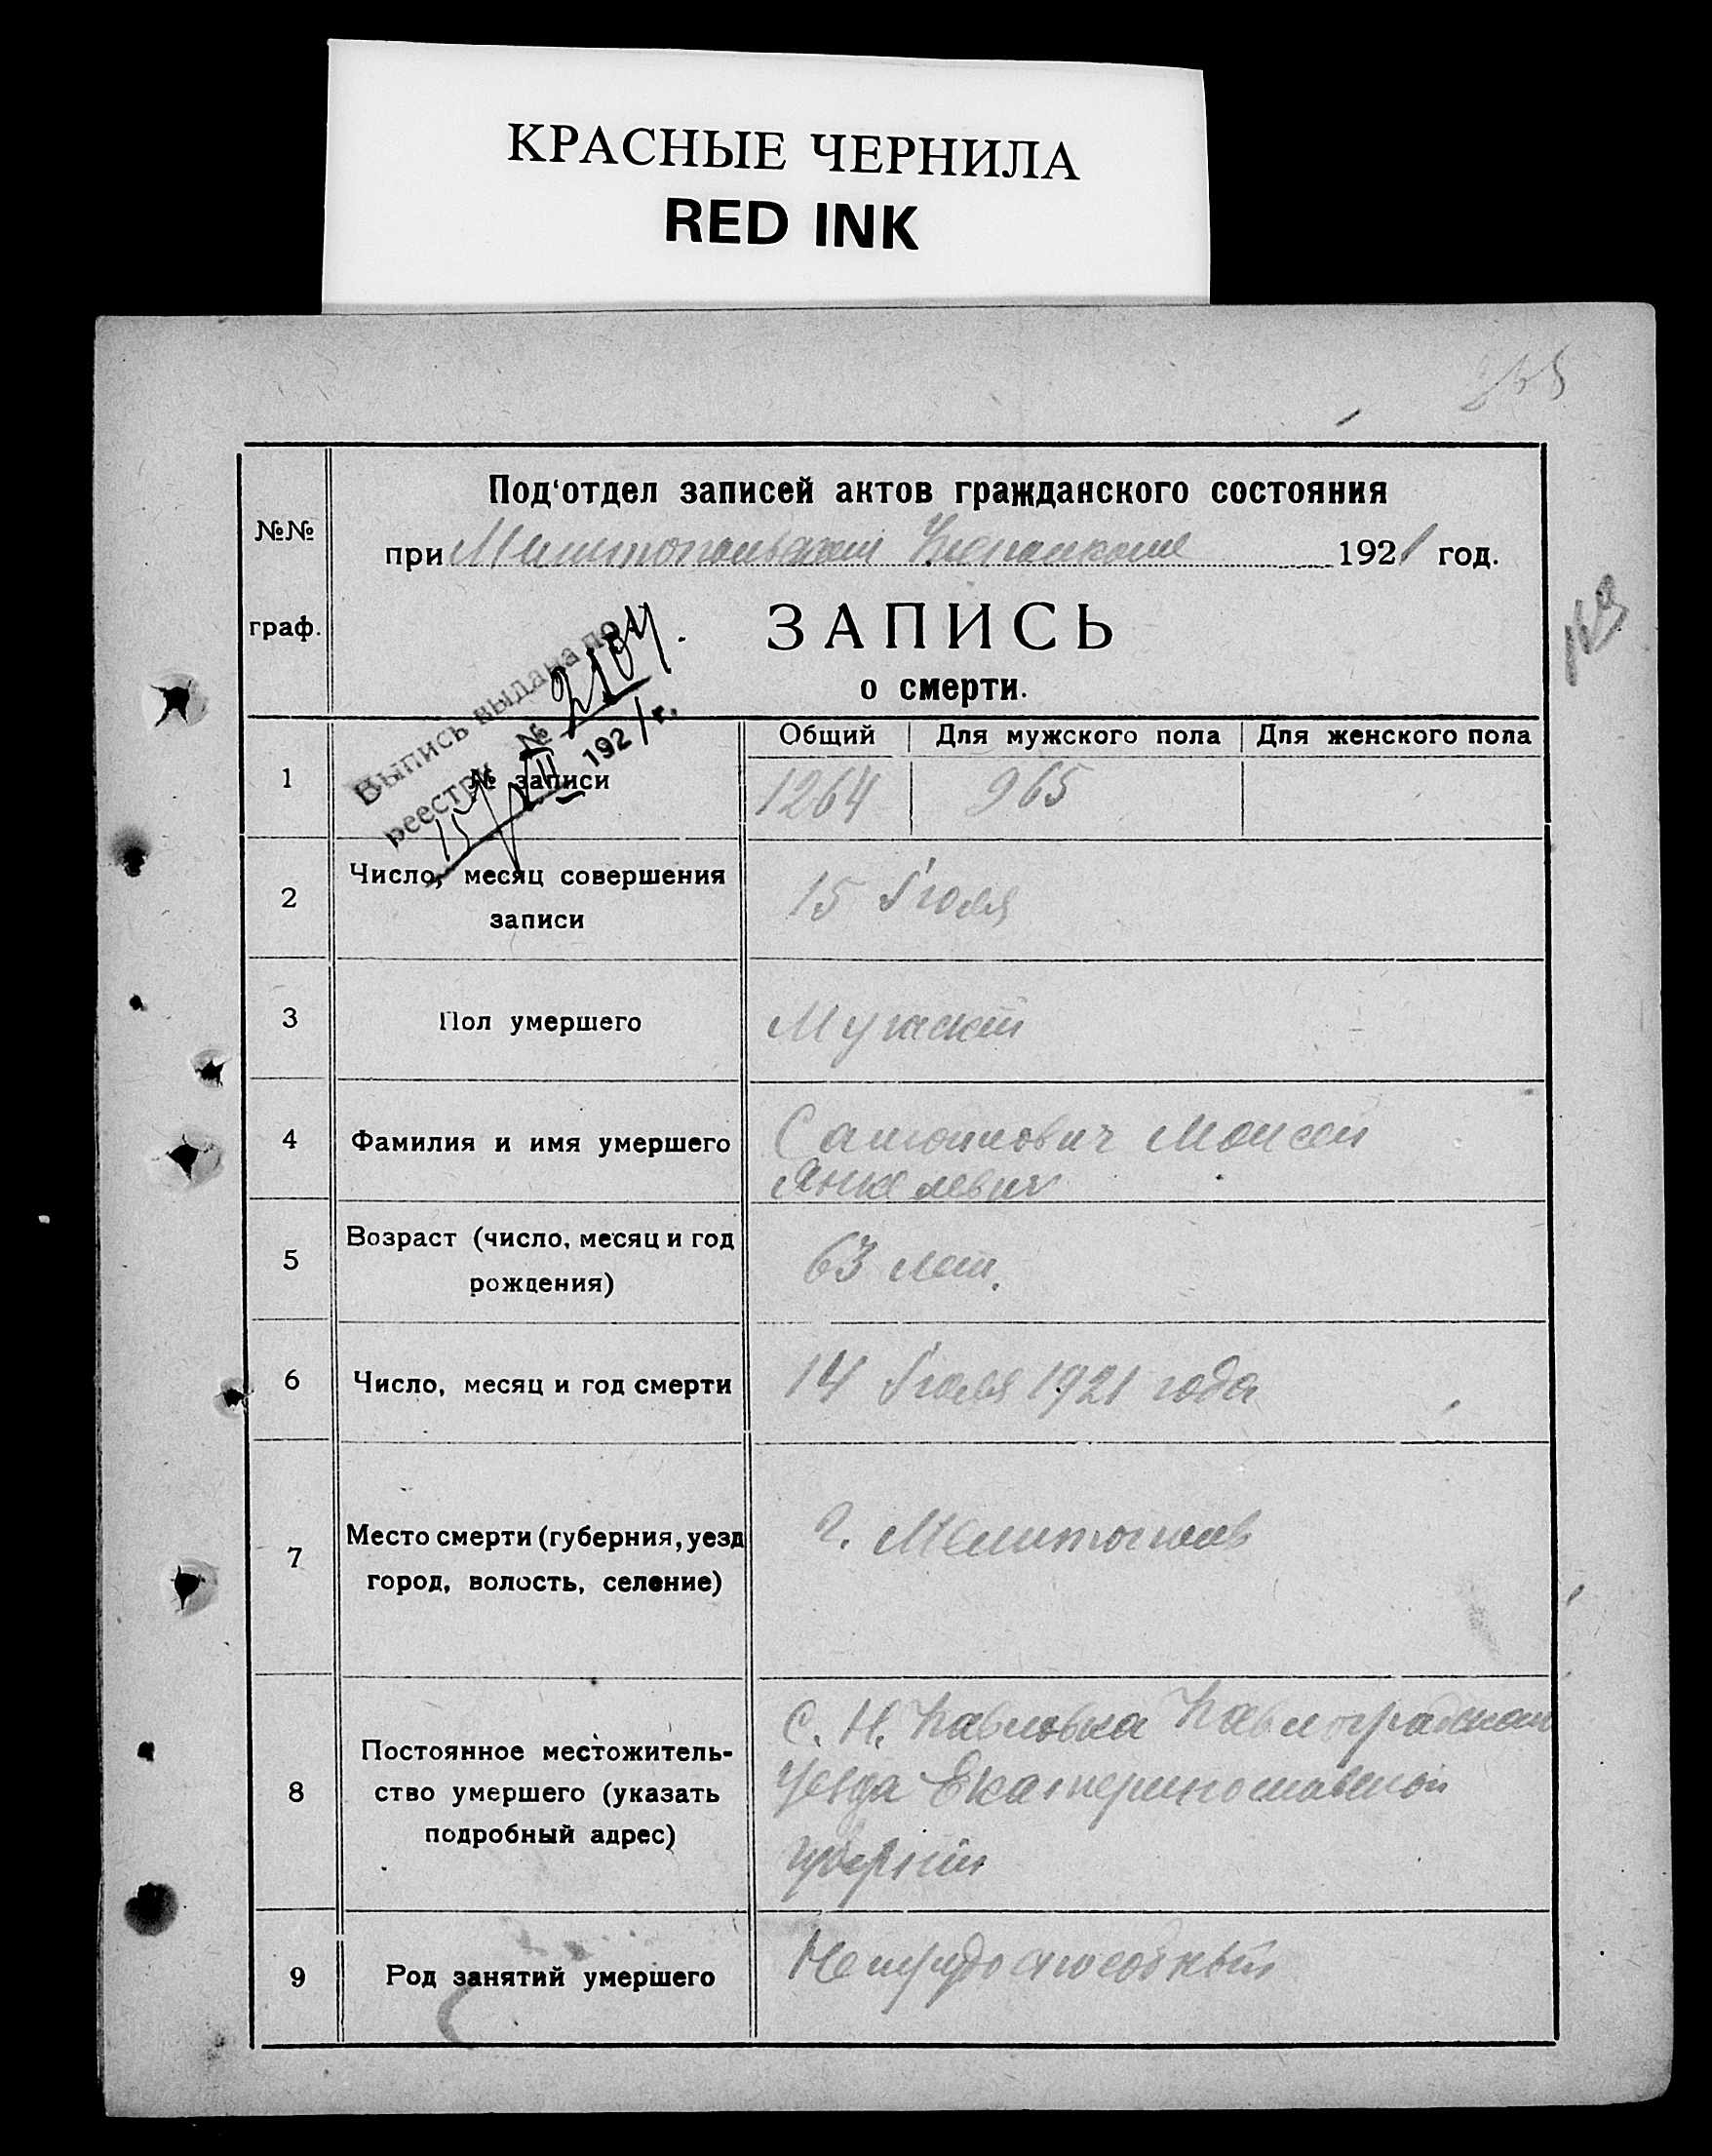 КРАСНЫЕ ЧЕРНИЛА
RED INK
Под‘отдел записей актов гражданского состояния
при 1921 год.
№№
граф.
ЗАПИСЬ
о смерти.
Выпись выдана по
реестру № 2184
15/VII 1921 г.
Общий Для мужского пола Для женского пола
1 № записи 1264 965
2 Число, месяц совершения
записи
15 Июля
3 Пол умершего Мужской
4 Фамилия и имя умершего Моисей
Янкелевич
5 Возраст (число, месяц и год
рождения)
63 лет.
6 Число, месяц и год смерти 14 Июля 1921 года
7 Место смерти (губерния, уезд
город, волость, селение)
г. Мелитополь
8 Постоянное местожитель-
ство умершего (указать
подробный адрес)
С. Н. Павловка Павлоградскаго
Уезда Екатеринославской
губернии
9 Род занятий умершего Нетрудоспособный